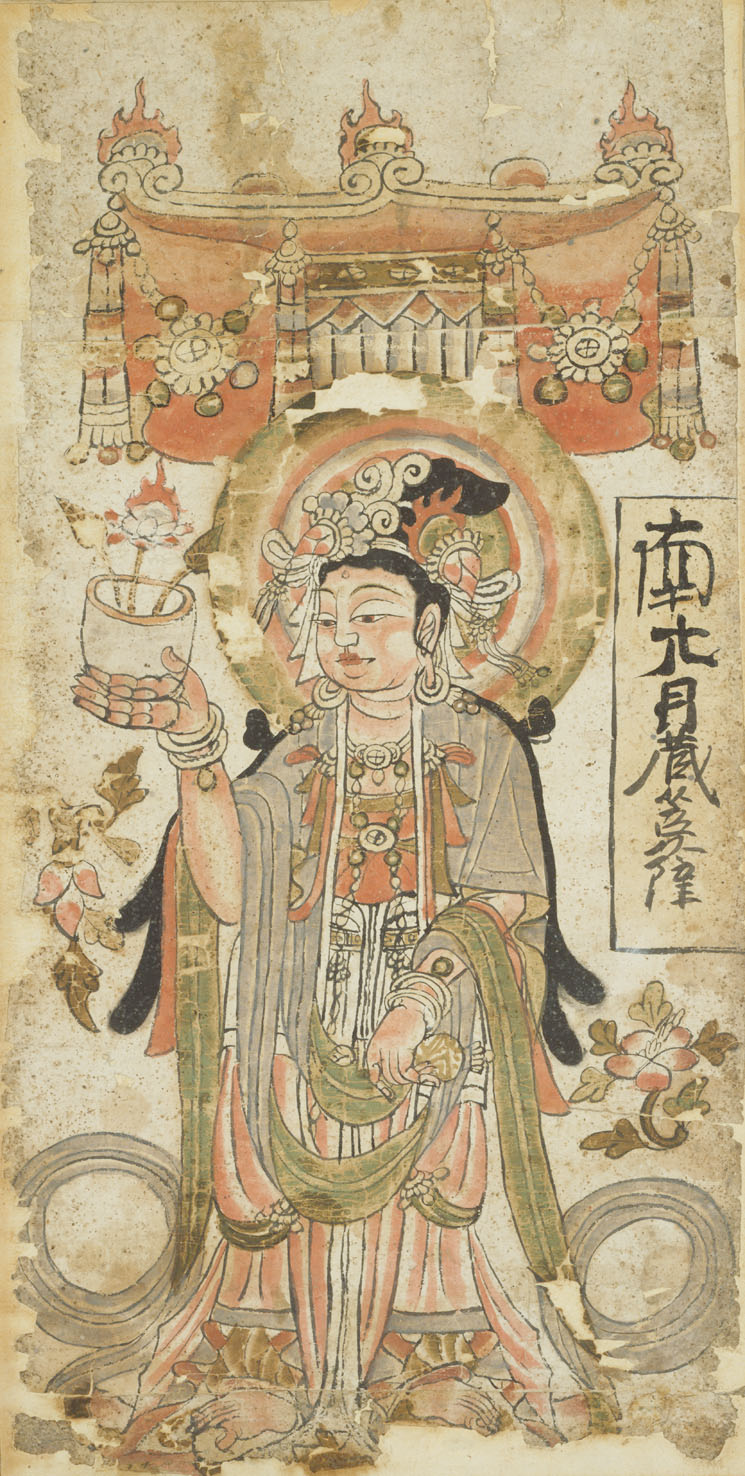 南无月藏菩薩